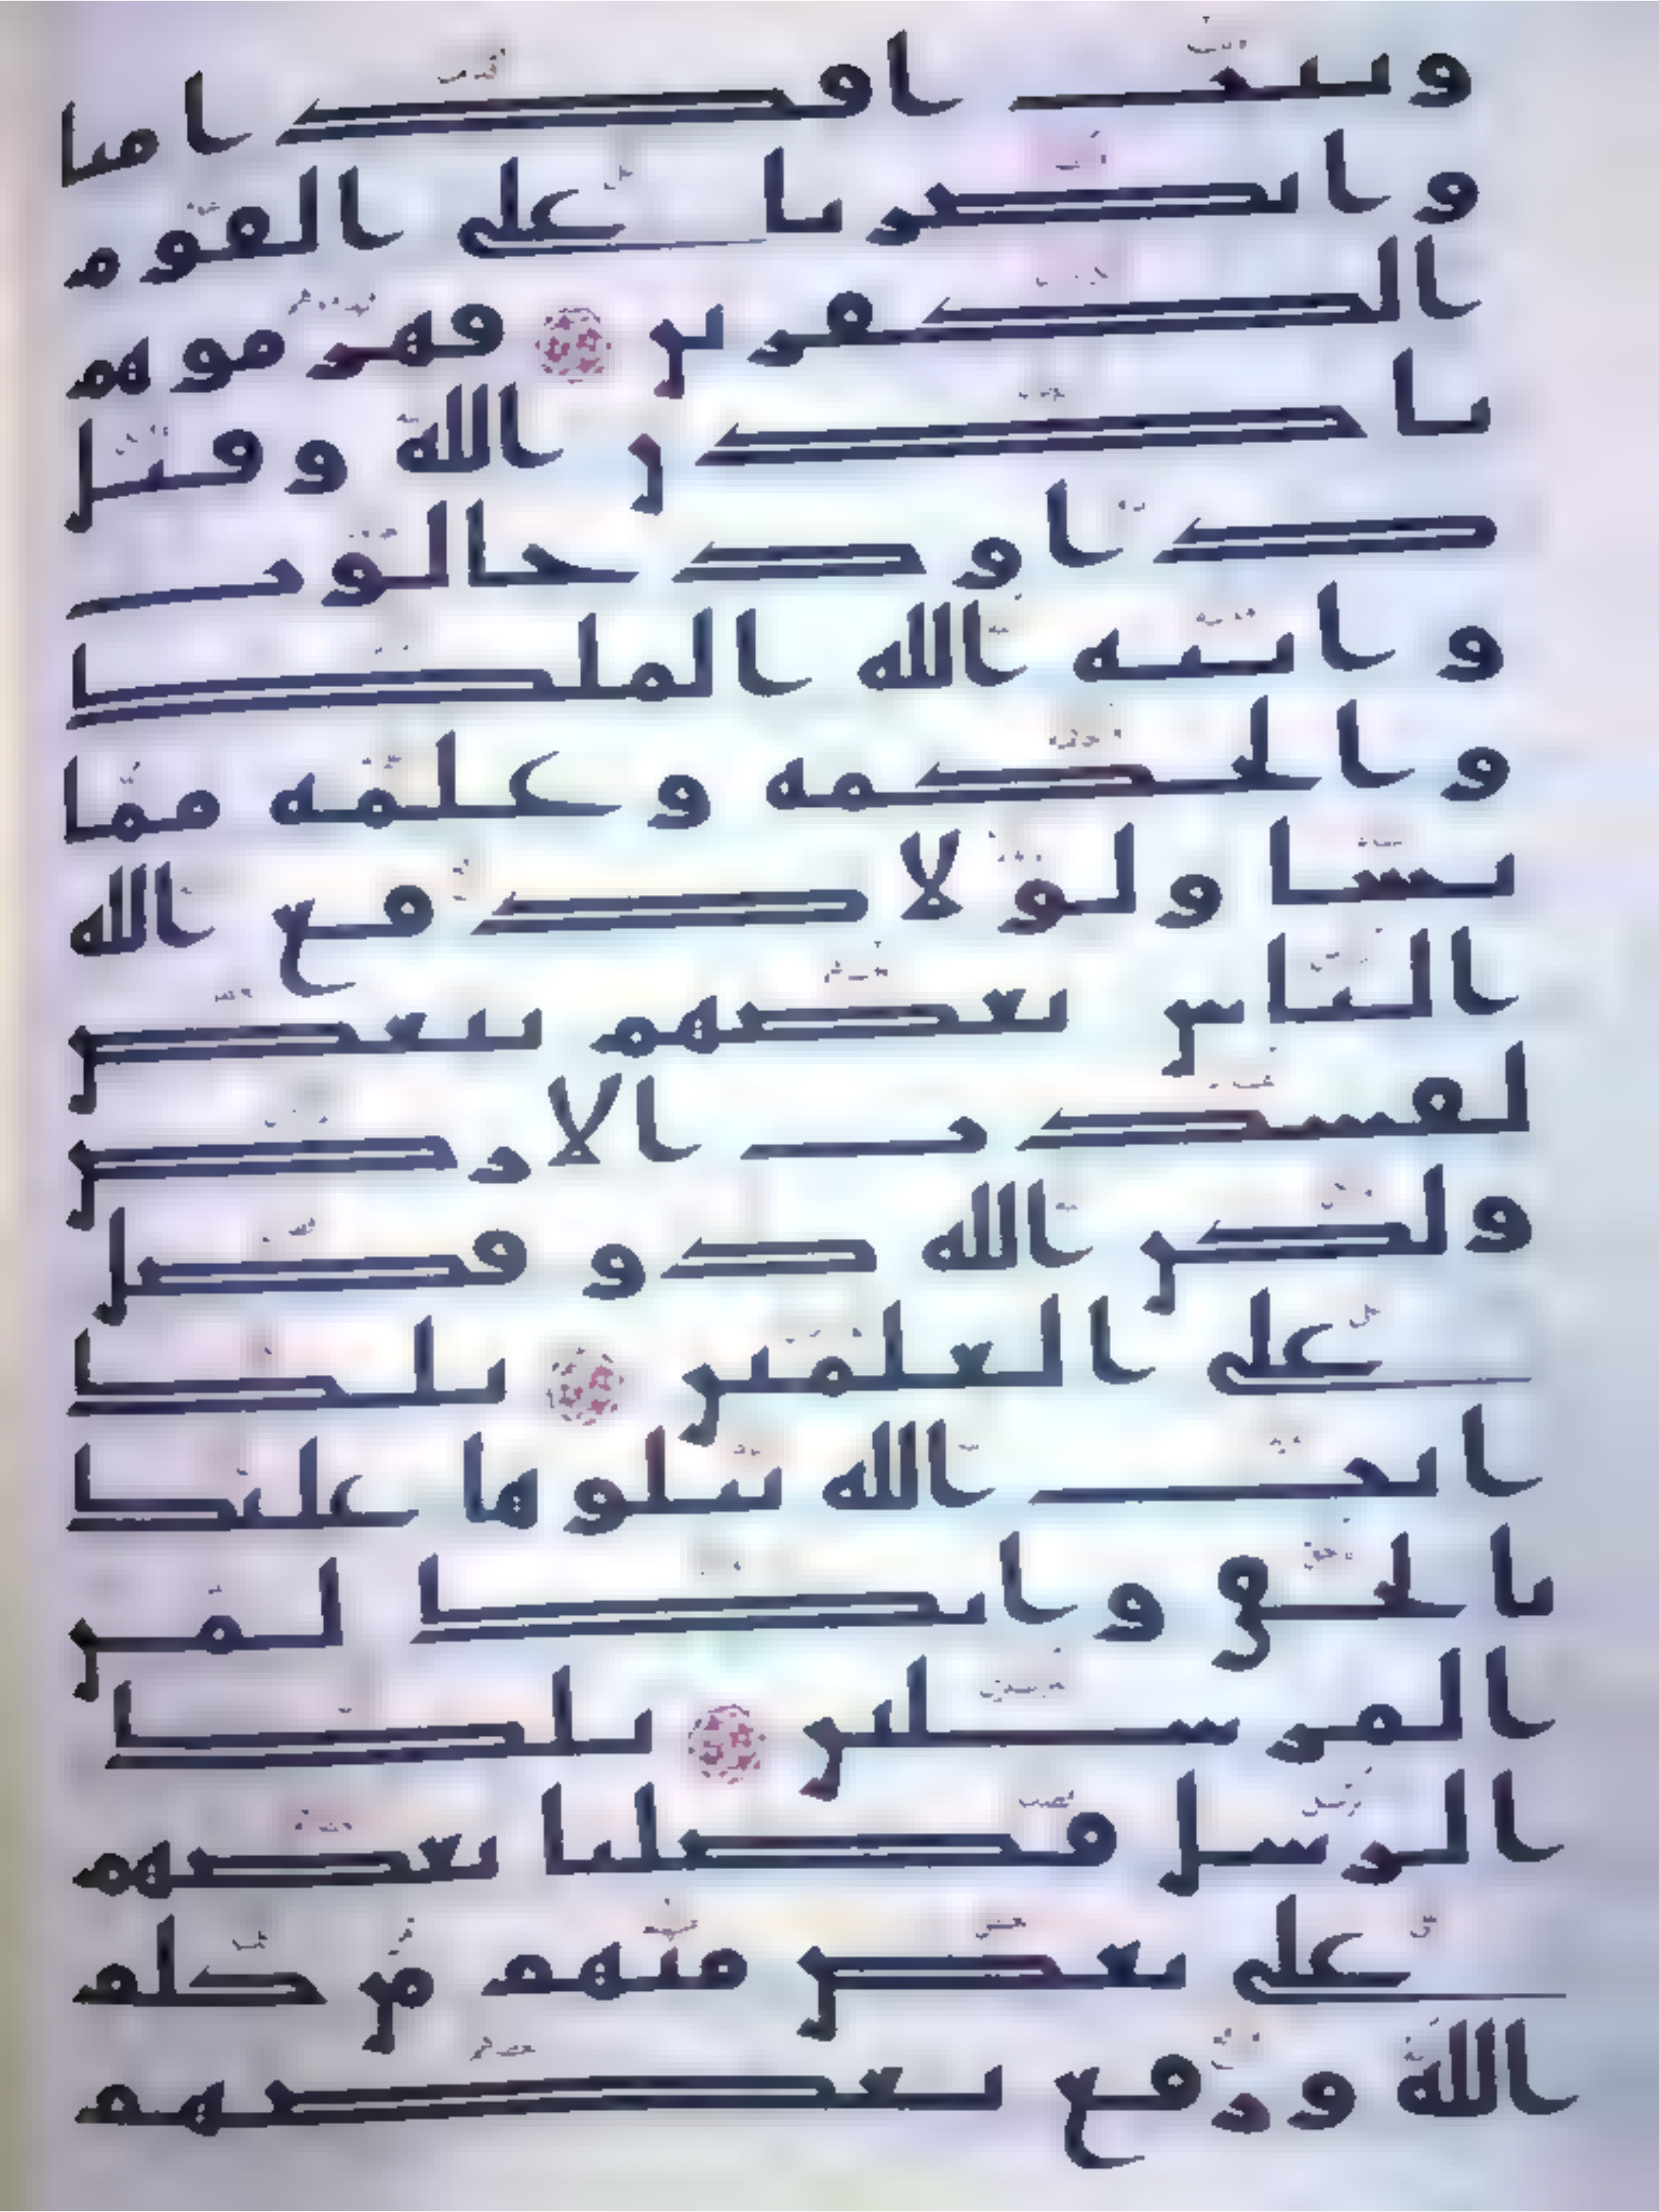 وثبت اقدامنا
وانصرنا على القوم
الكفرين فهزموهم
باذن الله وقتل
داود جالوت
واتيه الله الملك
والحكمه وعلمه مما
يشا ولولا دفع الله
الناس بعضهم ببعض
لفسدت الارض
ولكن الله ذو فضل
على العلمين تلك
ايت الله نتلوها عليك
بالحق وانك لمن
المرسلين تلك
الرسل فضلنا بعضهم
على بعض منهم من كلم
الله ورفع بعضهم